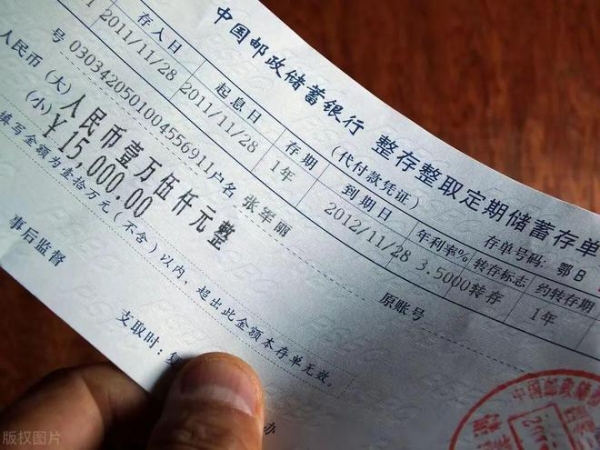 中国邮政储蓄银行 整存整取定期储蓄存单
(代付款凭证) 存单号码: 鄂B
存入日 起息日 存期 到期日 年利率% 转存标志 约转存期
2011/11/28 2011/11/28 1年 2012/11/28 3.5000 转存 1年
号 0303420501004556911 户名 张军丽 原账号
人民币 (大) 人民币壹万伍仟元整
(小) ¥15,000.00
填写金额为壹拾万元(不含)以内、超出此金额本存单无效。
事后监督
支取时:
办
中国邮政储蓄
版权图片